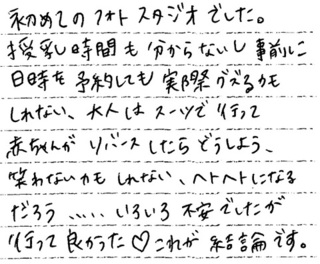 初めてのフォトスタジオでした。
授乳時間も分からないし事前に
日時を予約しても実際グズるかも
しれない、大人はスーツで行って
赤ちゃんがリバースしたらどうしよう、
笑わないかもしれない、ヘトヘトになる
だろう……いろいろ不安でしたが
行って良かった♡これが結論です。